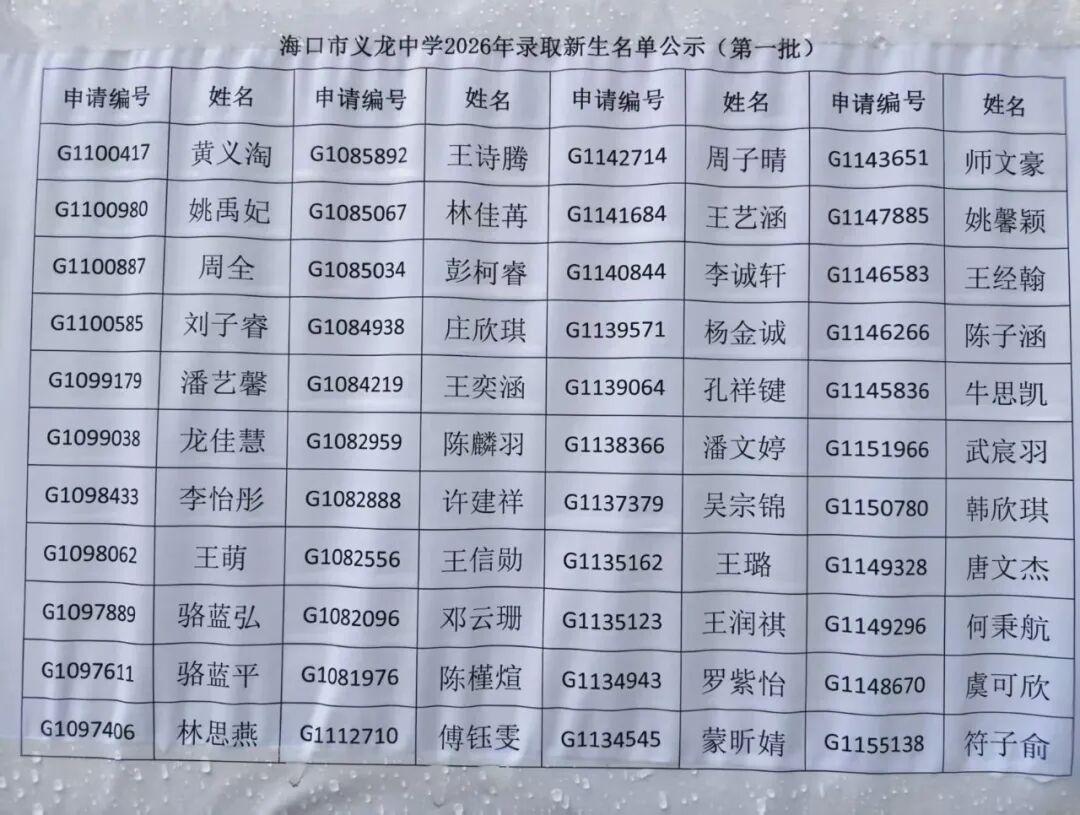 海口市义龙中学2026年录取新生名单公示（第一批）
申请编号 姓名 申请编号 姓名 申请编号 姓名 申请编号 姓名
G1100417 黄义淘 G1085892 王诗腾 G1142714 周子晴 G1143651 师文豪
G1100980 姚禹妃 G1085067 林佳苒 G1141684 王艺涵 G1147885 姚馨颖
G1100887 周全 G1085034 彭柯睿 G1140844 李诚轩 G1146583 王经翰
G1100585 刘子睿 G1084938 庄欣琪 G1139571 杨金诚 G1146266 陈子涵
G1099179 潘艺馨 G1084219 王奕涵 G1139064 孔祥键 G1145836 牛思凯
G1099038 龙佳慧 G1082959 陈麟羽 G1138366 潘文婷 G1151966 武宸羽
G1098433 李怡彤 G1082888 许建祥 G1137379 吴宗锦 G1150780 韩欣琪
G1098062 王萌 G1082556 王信勋 G1135162 王璐 G1149328 唐文杰
G1097889 骆蓝弘 G1082096 邓云珊 G1135123 王润祺 G1149296 何秉航
G1097611 骆蓝平 G1081976 陈槿煊 G1134943 罗紫怡 G1148670 虞可欣
G1097406 林思燕 G1112710 傅钰雯 G1134545 蒙昕婧 G1155138 符子俞